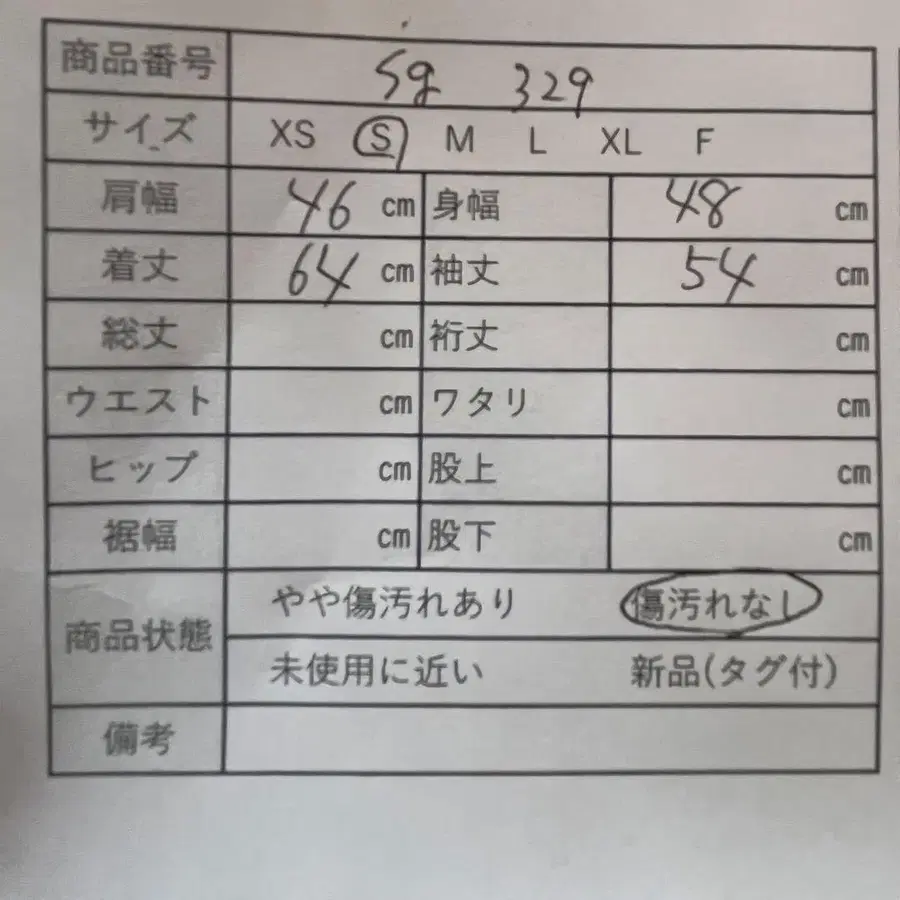 商品番号 Sg 329
サイズ XS S M L XL F
肩幅 46 cm 身幅 48 cm
着丈 64 cm 袖丈 54 cm
総丈 cm 裄丈 cm
ウエスト cm ワタリ cm
ヒップ cm 股上 cm
裾幅 cm 股下 cm
商品状態 やや傷汚れあり 傷汚れなし
未使用に近い 新品(タグ付)
備考